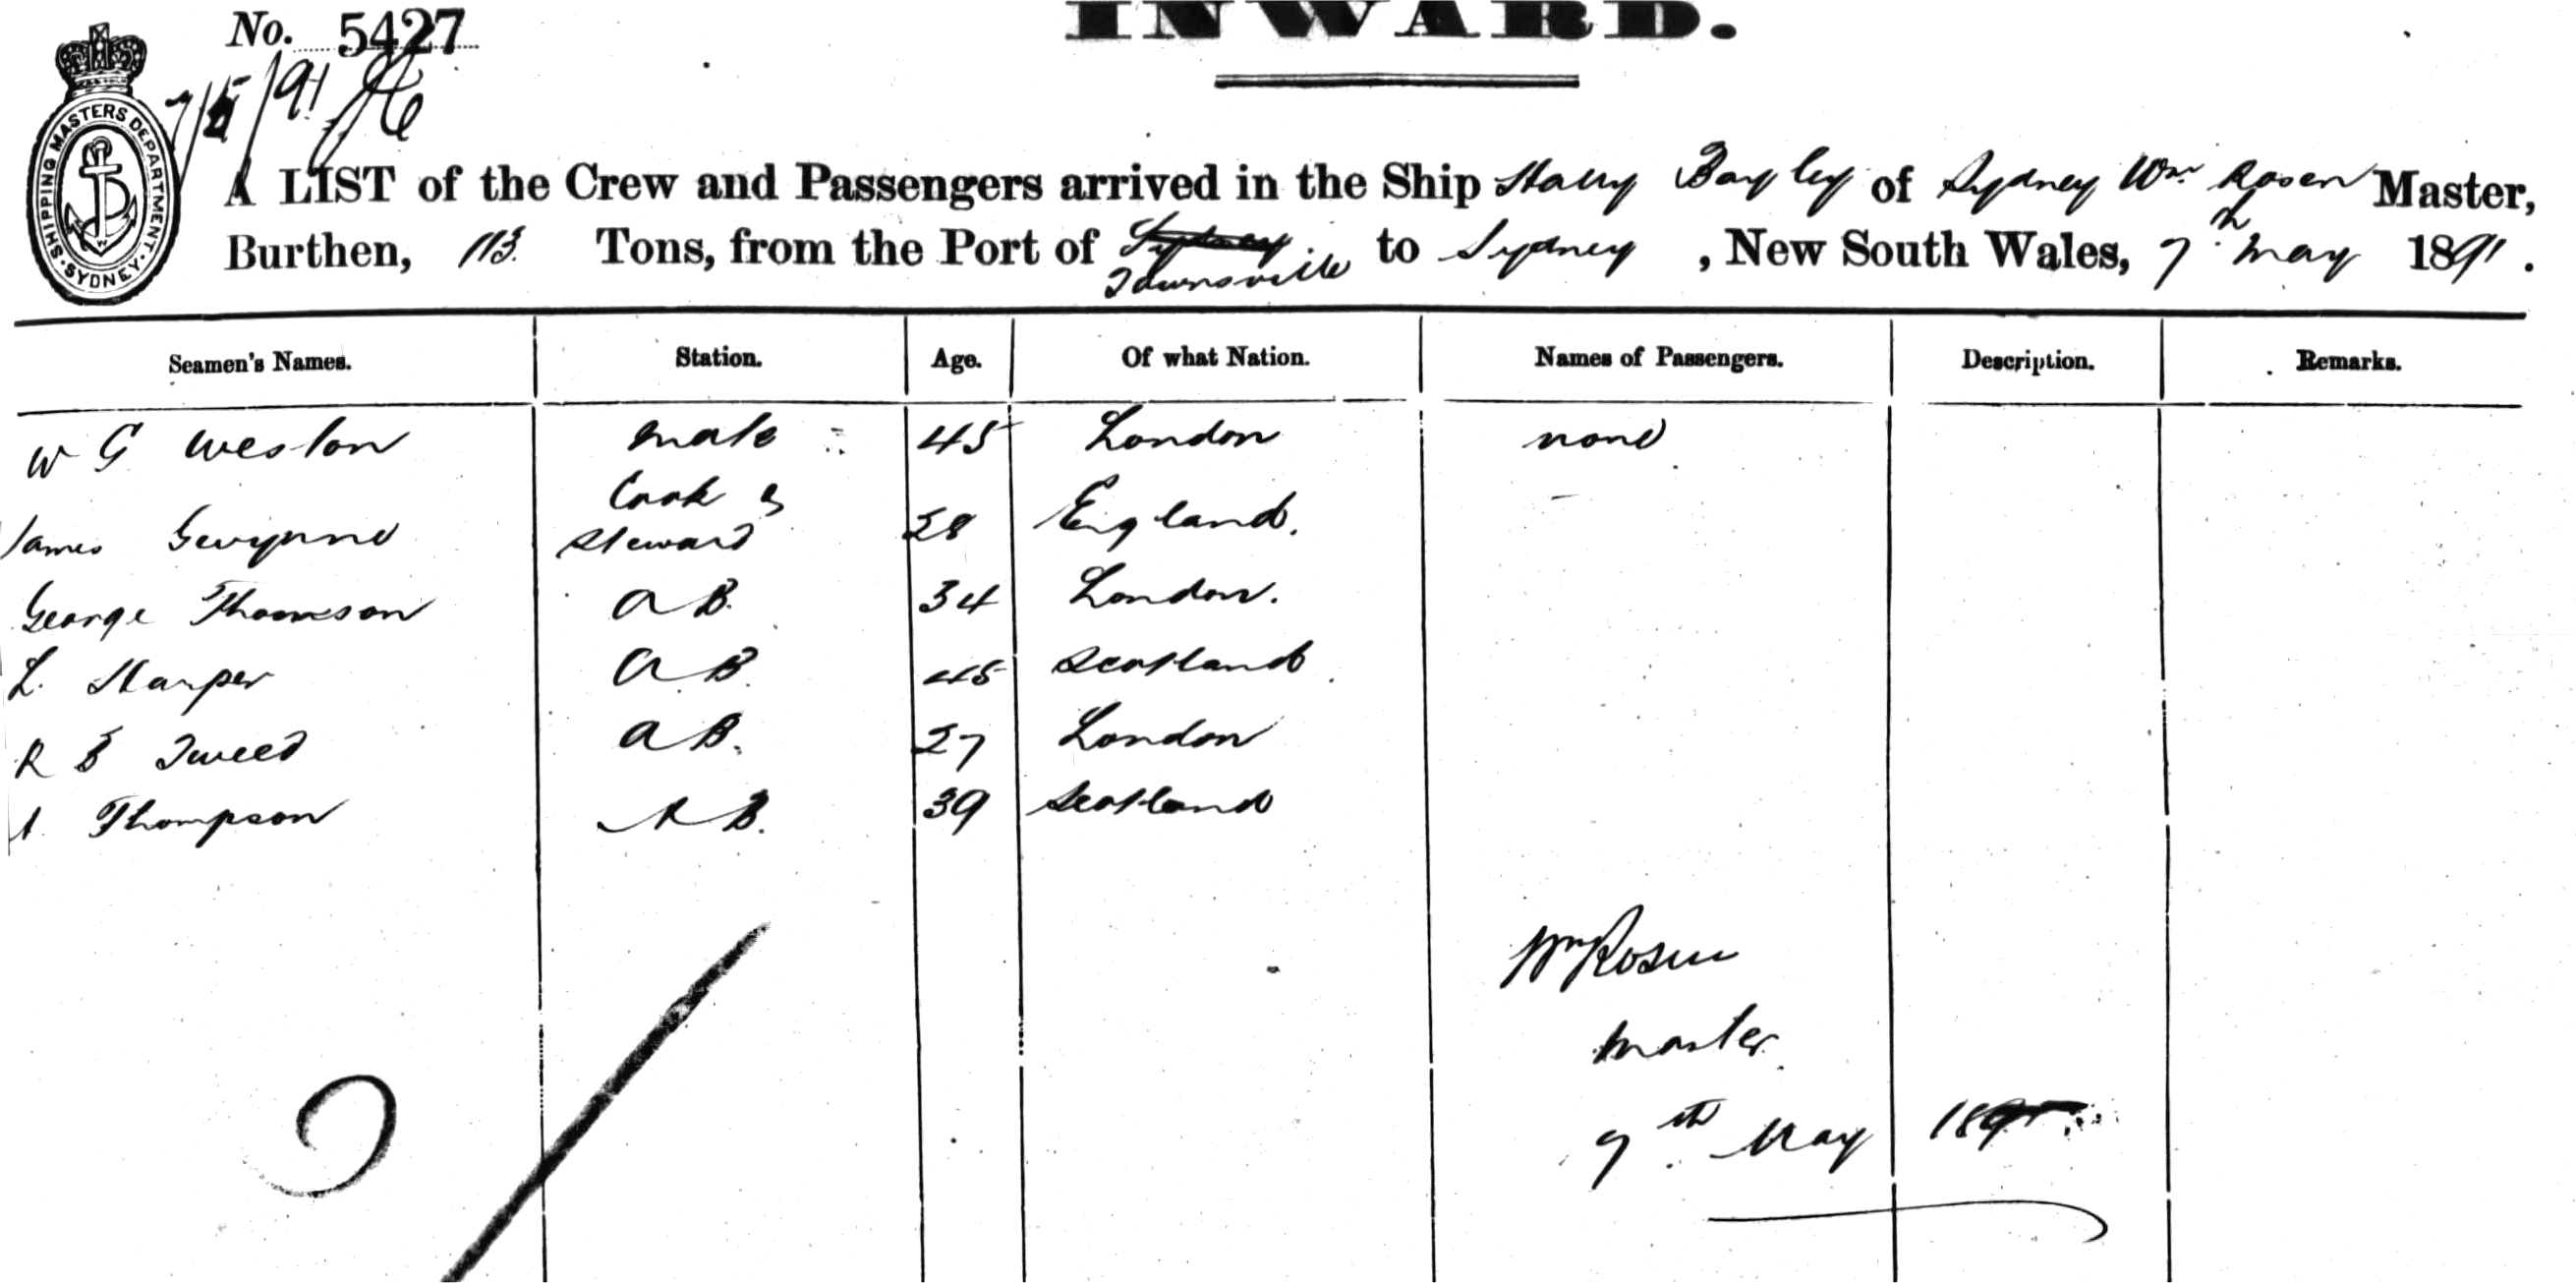 INWARD.
No. 5427
7/5/91
SHIPPING MASTERS DEPARTMENT. SYDNEY.
A LIST of the Crew and Passengers arrived in the Ship Harry Bayley of Sydney Wm Rosen Master,
Burthen, 113 Tons, from the Port of Sydney Townsville to Sydney, New South Wales, 7th May 1891.
Seamen's Names. Station. Age. Of what Nation. Names of Passengers. Description. Remarks.
W G Weston mate 45 London none
James Gwynne Cook & Steward 28 England.
George Thomson A B. 34 London.
L. Harper A B. 45 Scotland.
R Tweed A B. 27 London
A. Thompson A B. 39 Scotland
Wm Rosen
master
7th May 1891